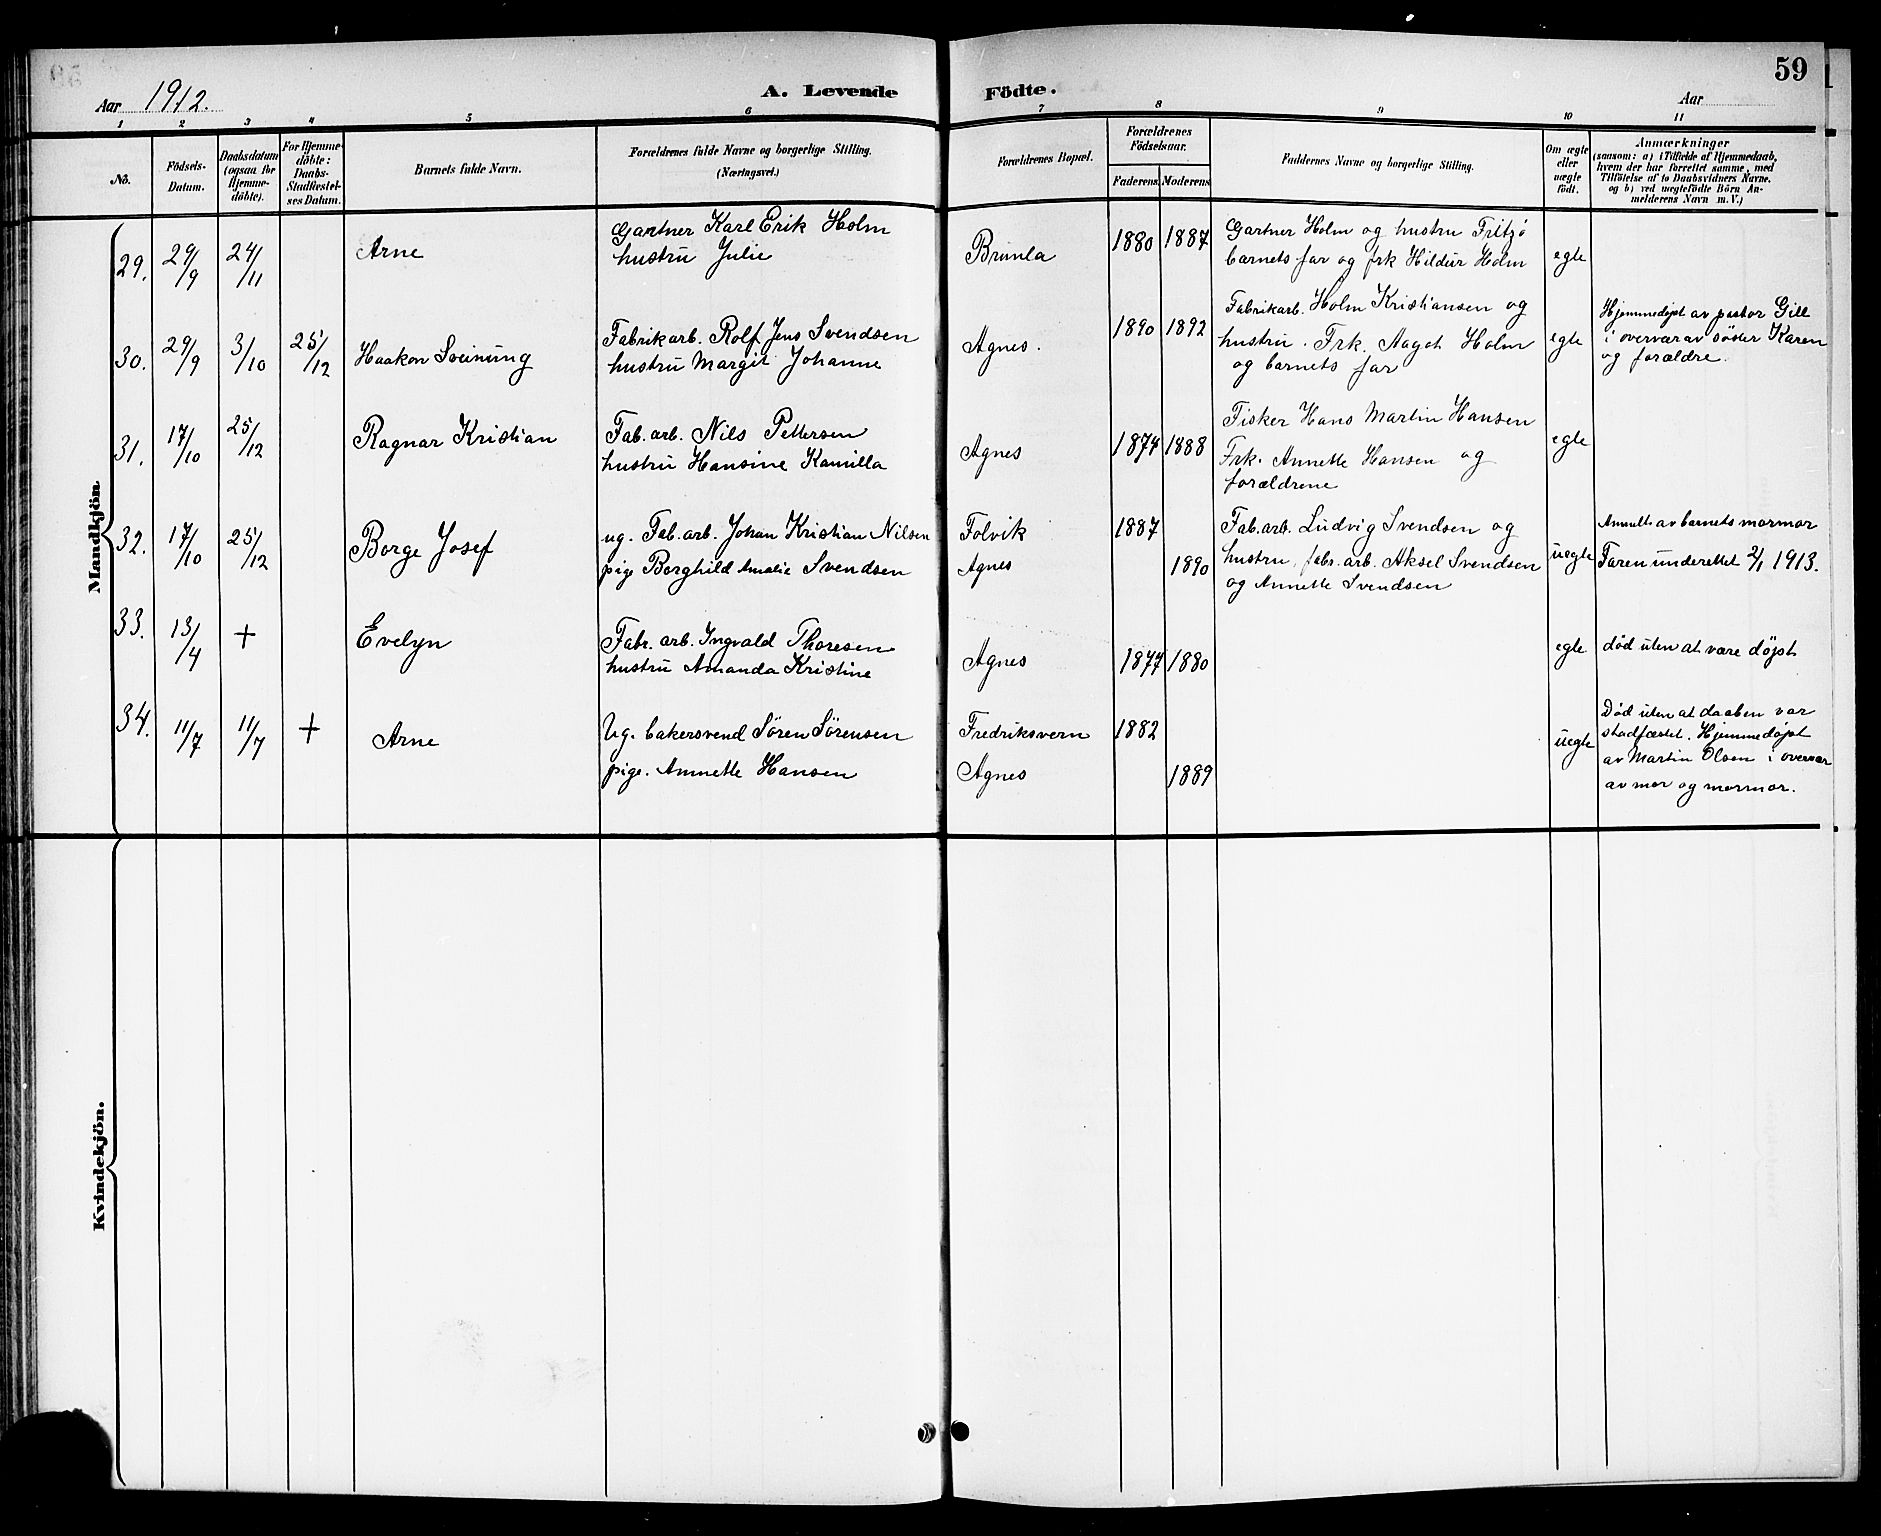 59
Aar 1912.
A. Levende Födte.
Aar
1 2 3 4 5 6 7 8 9 10 11
No.
Födsels-
Datum.
Daabsdatum
(ogsaa for
Hjemme-
döbte).
For Hjemme-
döbte:
Daabs-
Stadfæstel-
ses Datum.
Barnets fulde Navn.
Forældrenes fulde Navne og borgerlige Stilling.
(Næringsvei.)
Forældrenes Bopæl.
Forældrenes
Födselsaar.
Faderens. Moderens.
Faddernes Navne og borgerlige Stilling.
Om ægte
eller
uægte
födt.
Anmærkninger
(saasom: a) i Tilfælde af Hjemmedaab,
hvem der har forrettet samme, med
Tilföielse af to Daabsvidners Navne,
og b) ved uægtefödte Börn An-
melderens Navn m. V.)
Mandkjön.
29. 29/9 24/11
Arne
Gartner Karl Erik Holm
hustru Julie
Brunla
1880 1887
Gartner Holm og hustru Fritzö
barnets far og frk Hildur Holm
egte
30. 29/9 3/10 25/12
Haakon Sveinung
Fabrikarb. Rolf Jens Svendsen
hustru Margit Johanne
Agnes.
1890 1892
Fabrikarb. Holm Kristiansen og
hustru. Frk. Aagot Holm
og barnets far
egte
Hjemmedøpt av pastor Gill
i overvær av søster Karen
og forældre.
31. 17/10 25/12
Ragnar Kristian
Fab. arb. Nils Pettersen
hustru Hansine Kamilla
Agnes
1874 1888
Fisker Hans Martin Hansen
Frk. Annette Hansen og
forældrene
egte
32. 17/10 25/12
Borge Josef
ug. Fab. arb. Johan Kristian Nilsen
pige Borghild Amalie Svendsen
Folvik
Agnes
1887
1890
Fab. arb. Ludvig Svendsen og
hustru, fabr. arb. Aksel Svendsen
og Annette Svendsen
uegte
Anmelt av barnets mormor
Faren underettet 2/1 1913.
33. 13/4 +
Evelyn
Fabr. arb. Ingvald Thoresen
hustru Amanda Kristine
Agnes
1877 1880
egte
død uten at være døpt
34. 11/7 11/7 +
Arne
Ug. bakersvend Søren Sørensen
pige. Annette Hansen
Fredriksvern
Agnes
1882
1889
uegte
Død uten at daaben var
stadfæstet. Hjemmedøpt
av Martin Olsen i overvær
av mor og mormor.
Kvindekjön.